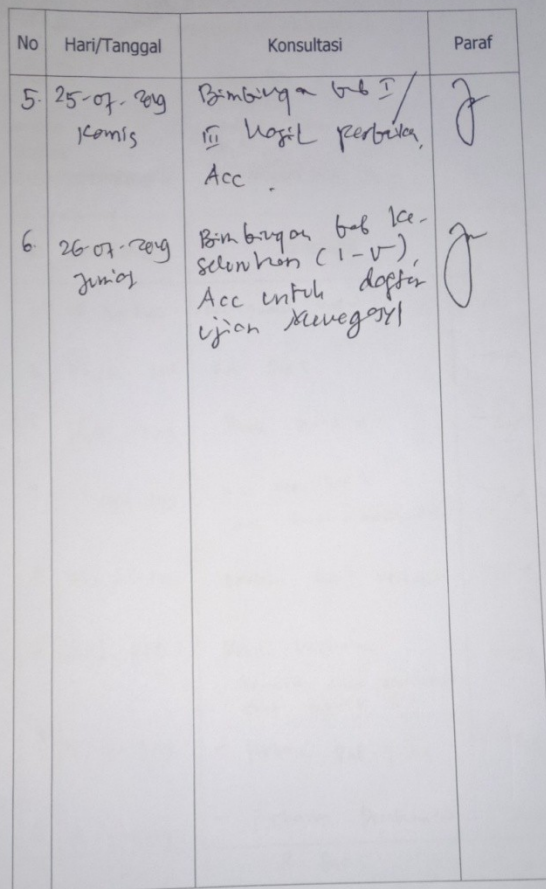 No Hari/Tanggal Konsultasi Paraf
5. 25-07-2019 Bimbingan bab I/
Kamis III Hasil perbaikan,
Acc.
6. 26-07-2019 Bimbingan bab ke-
Jum'at seluruhan (I-V),
Acc untuk daftar
ujian Munaqosyl